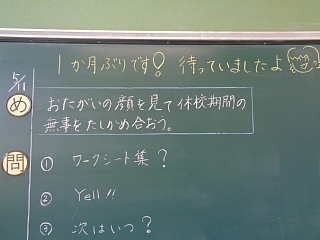 1か月ぶりです! 待っていましたよ
5/1
め おたがいの顔を見て休校期間の
無事をたしかめ合おう。
問 ① ワークシート集?
② Yell!!
③ 次はいつ?